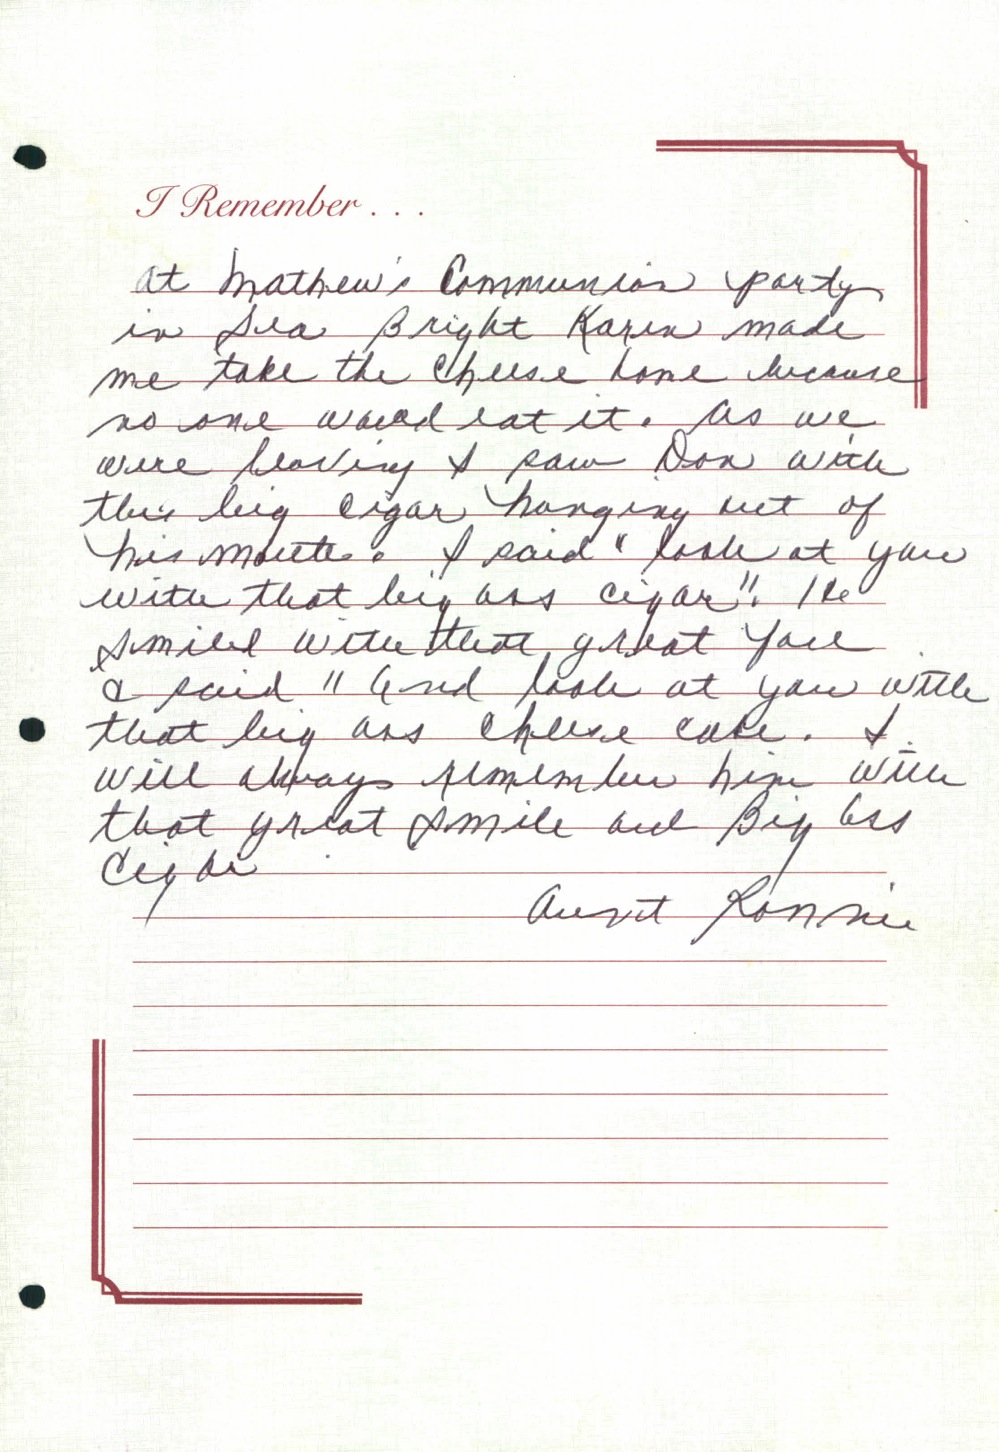 I Remember...
at Mathew's Communion party
in Sea Bright Karen made
me take the cheese home because
no one would eat it. As we
were leaving I saw Don with
this big cigar hanging out of
his mouth. I said "look at you
with that big ass cigar". He
smiled with that great
& said "And look at you with
that big ass cheese cake. I
will always remember him with
that great smile and Big Ass
Cigar
Aunt Ronnie